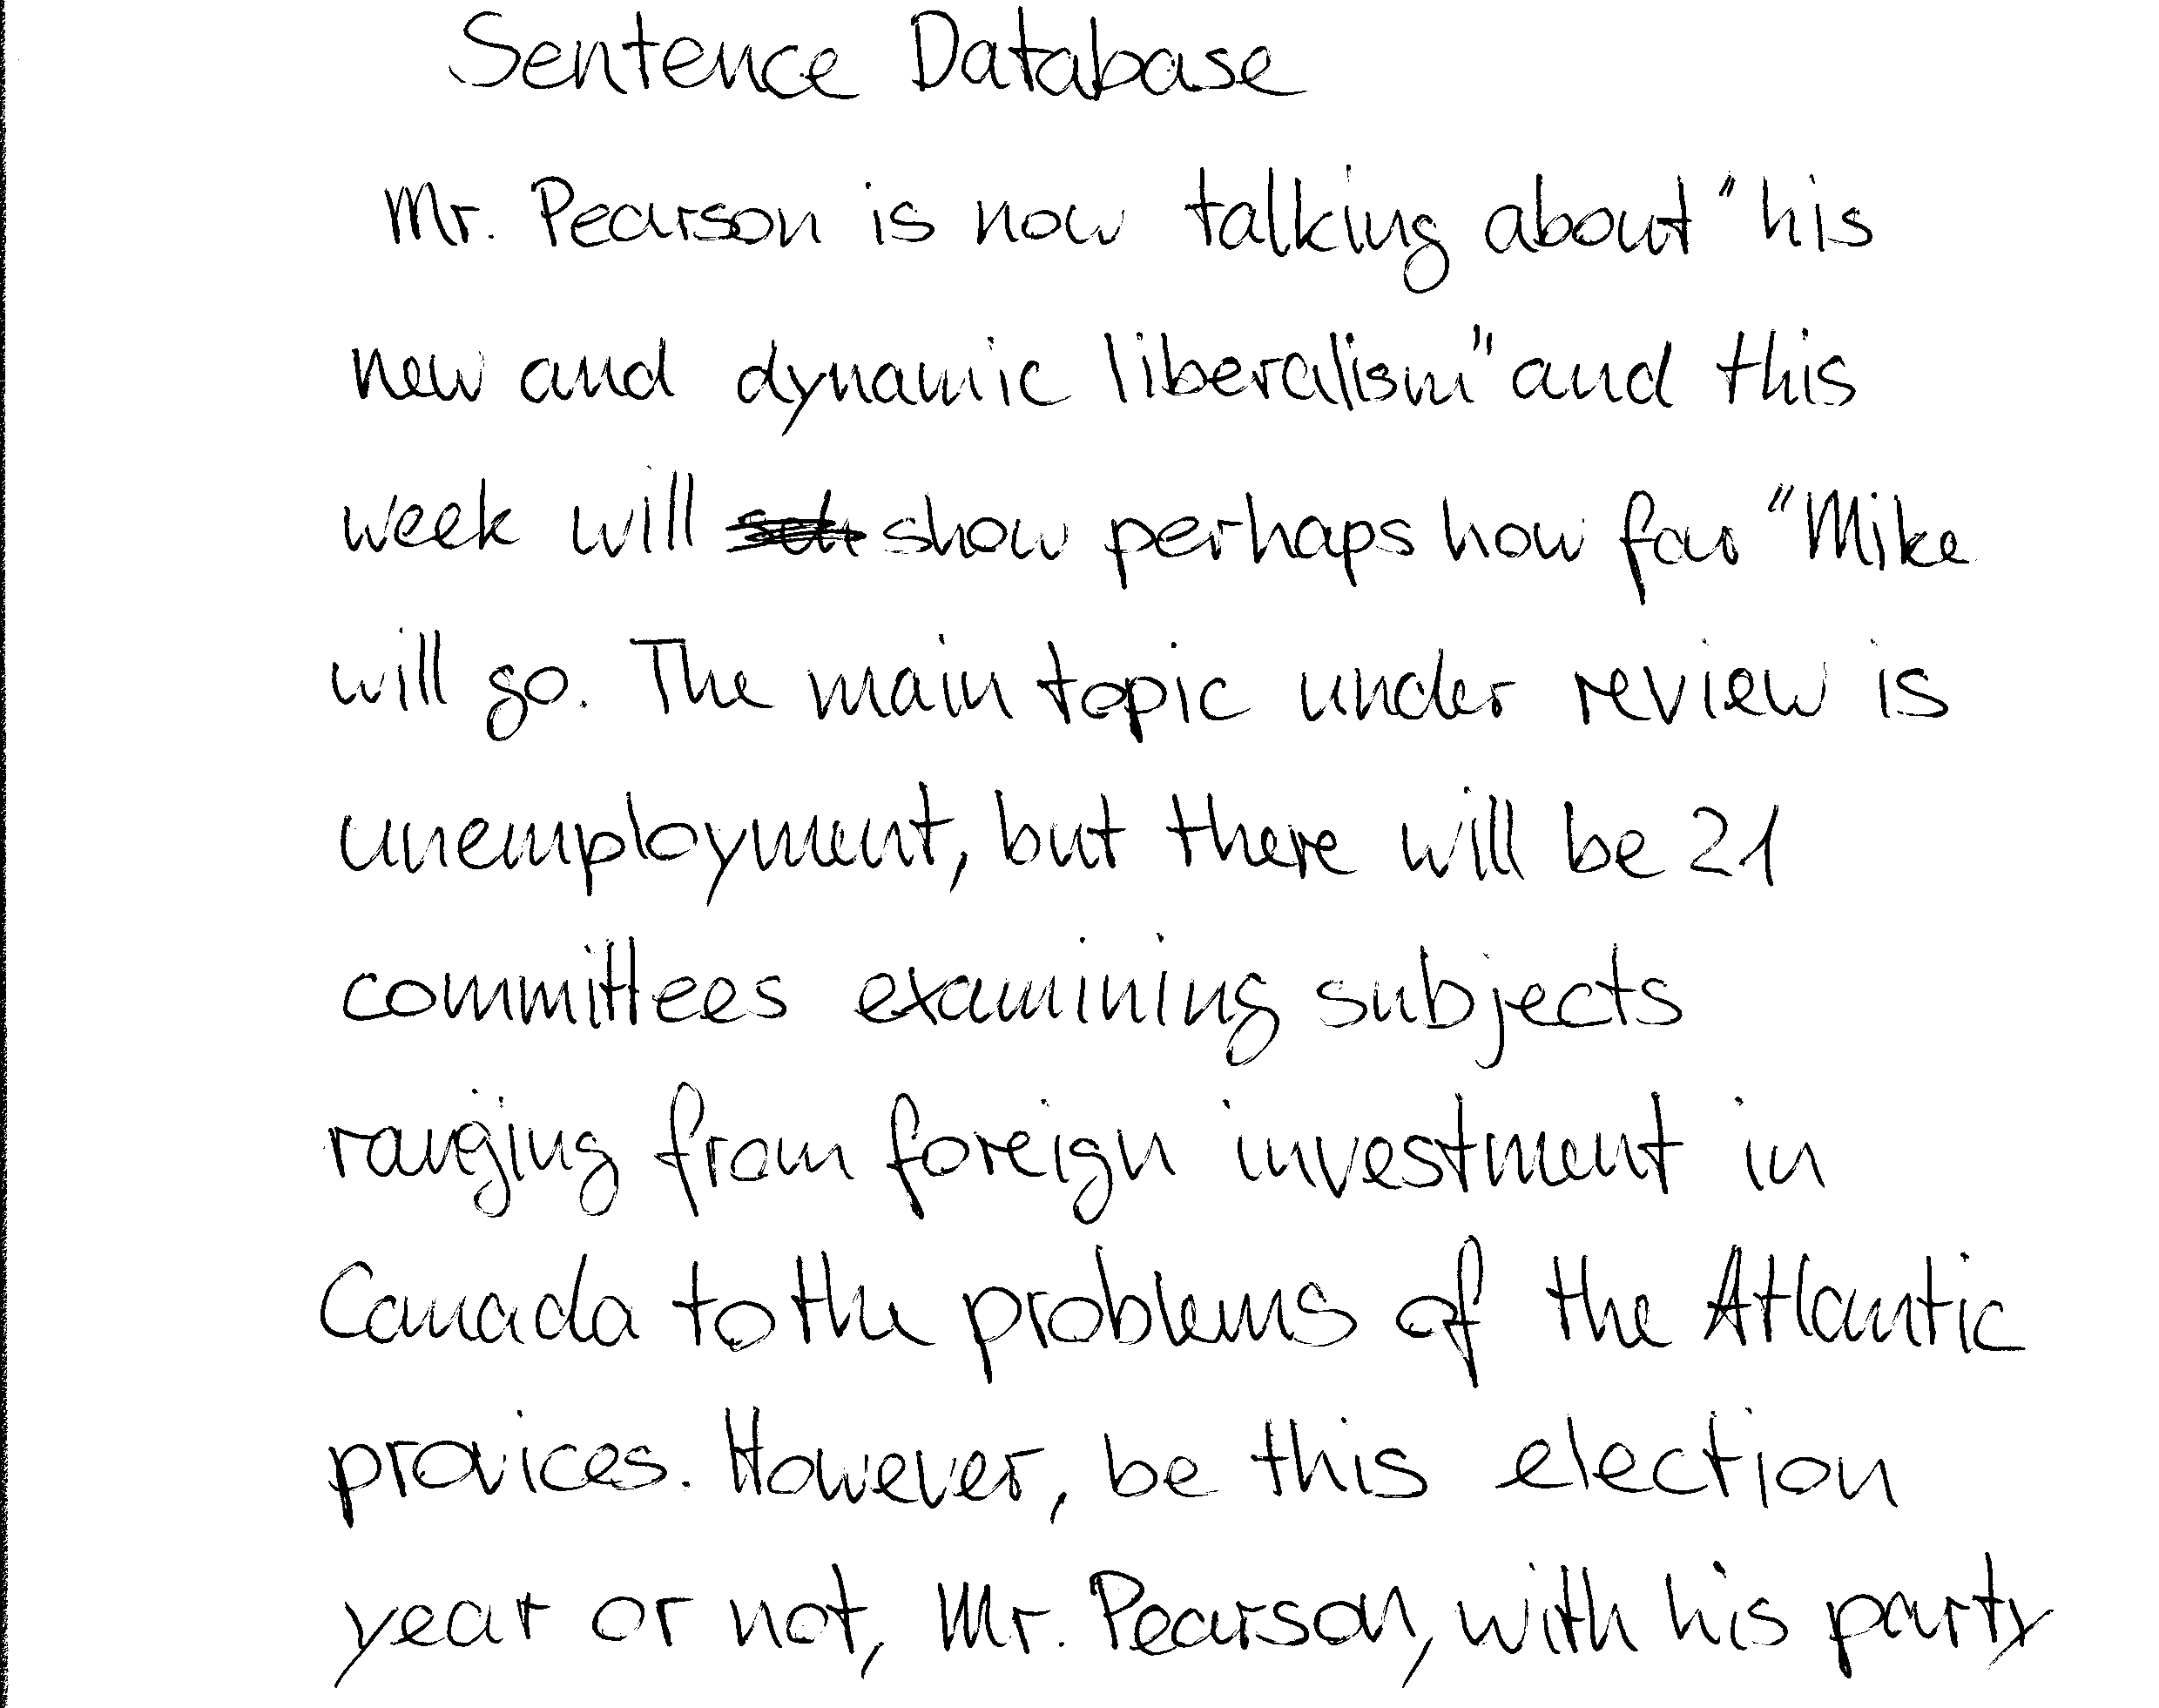 Sentence Database
Mr. Pearson is now talking about "his
new and dynamic liberalism" and this
week will show perhaps how far "Mike
will go. The main topic under review is
unemployment, but there will be 21
committees examining subjects
ranging from foreign investment in
Canada to the problems of the Atlantic
provices. However, be this election
year or not, Mr. Pearson, with his party